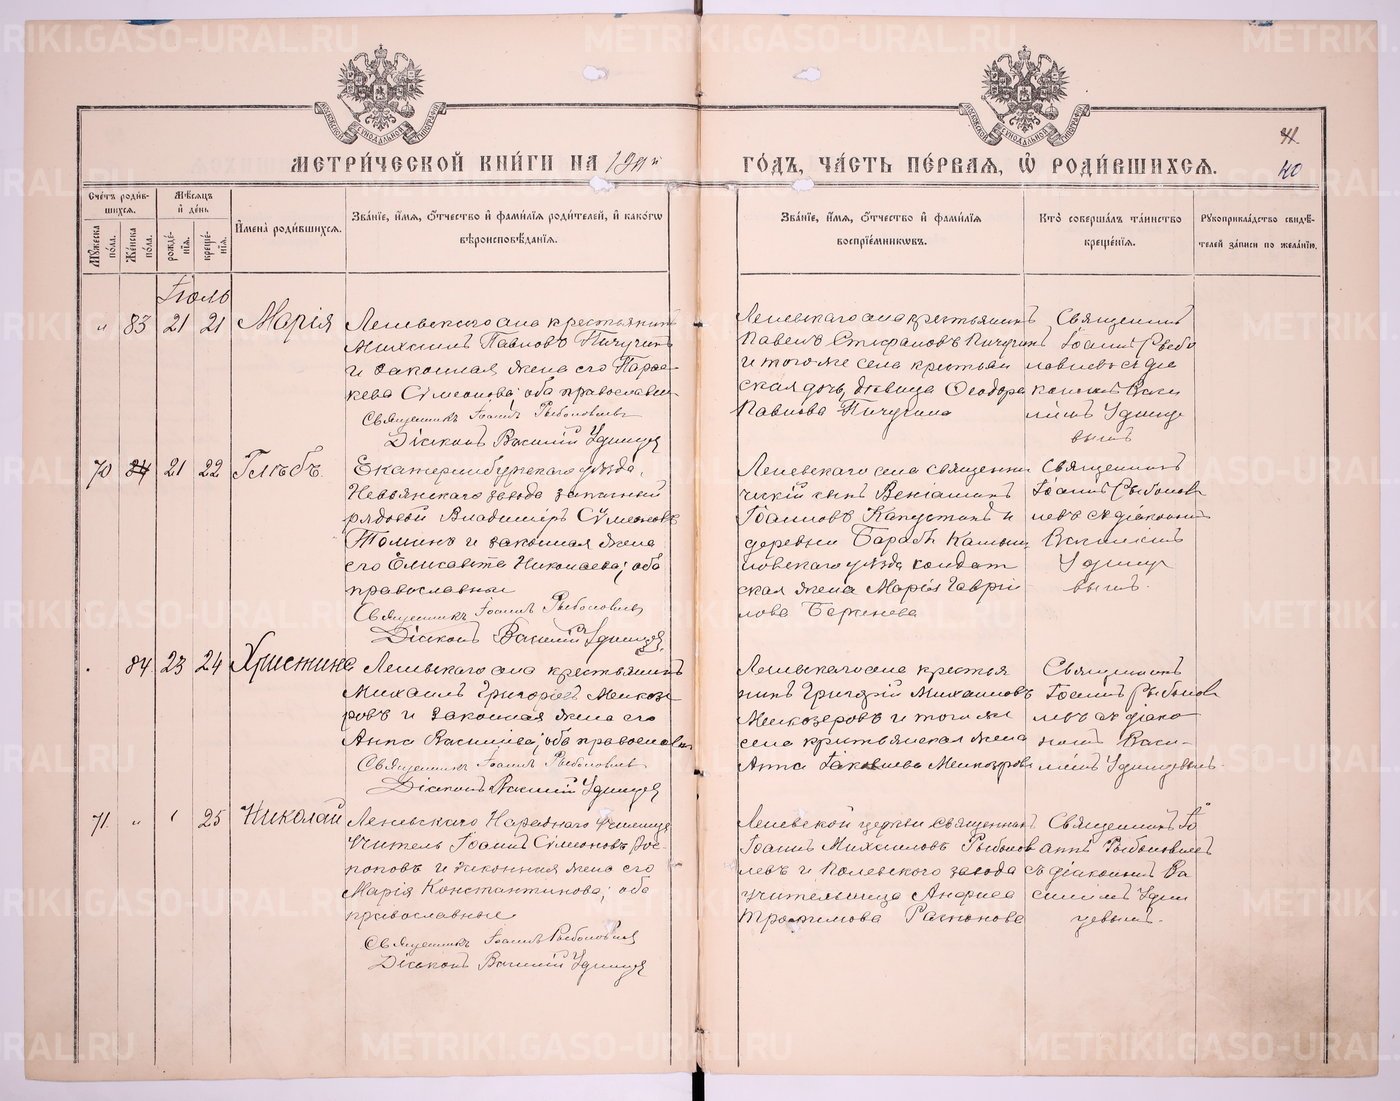 МЕТРИ́ЧЕСКОЙ КНИ́ГИ НА 1911й ГО́ДЪ, ЧА́СТЬ ПЕ́РВАЯ, Ѡ҆ РОДИ́ВШИХСЯ.
40
Сче́тъ роди́в-
шихся.
Мꙋ́жеска по́ла.
Же́нска по́ла.
Мѣ́сяцъ
и҆ де́нь
рожде́-
нїя.
креще́-
нїя.
И҆мена̀ роди́вшихся.
Зва́нїе, и҆́мя, ѻ҆́тчество и҆ фами́лїя роди́телей, и҆ како́гѡ
вѣроисповѣ́данїя.
Зва́нїе, и҆́мя, ѻ҆́тчество и҆ фами́лїя
воспрїе́мникѡвъ.
Кто̀ соверша́лъ та́инство
креще́нїя.
Рукоприкла́дство свидѣ́-
телей за́писи по жела́нїю.
Іюль
" 83 21 21 Марія
Леневскаго села крестьянинъ
Михаилъ Павловъ Пичугинъ
и законная жена его Парас-
кева Сѵмеонова; оба православн
Священникъ Іоаннъ Рыболовлевъ
Діаконъ Василій Удинцев
Леневскаго села крестьянинъ
Павелъ Стефановъ Пичугинъ
и того-же села крестьян
ская дочь, девица Ѳеодора
Павлова Пичугина
Священникъ
Іоаннъ Рыбо
ловлевъ съ діа
кономъ Васи
ліемъ Удинце
вымъ
70 84 21 22 Глѣбъ
Екатеринбургскаго уѣзда,
Невьянскаго завода запасный
рядовой Владиміръ Сѵмеоновъ
Томинъ и законная жена
его Елисавета Николаева; оба
православные
Священникъ Іоаннъ Рыболовлевъ
Діаконъ Василій Удинцев
Леневскаго села священни
ческій сынъ Веніаминъ
Іоанновъ Капустинъ и
деревни Бараб Камыш
ловскаго уѣзда солдат
ская жена Марія Гаврі
лова
Священникъ
Іоаннъ Рыболов
левъ съ діакономъ
Василіемъ
Удинце
вымъ
84 23 24 Христина
Леневскаго села крестьянинъ
Михаилъ Григорьевъ Мелкозе-
ровъ и законная жена его
Анна Васильева; оба православн
Священникъ Іоаннъ Рыболовлевъ
Діаконъ Василій Удинцев
Леневскаго села крестья
нинъ Григорій Михаиловъ
Мелкозеровъ и того же
села крестьянская жена
Анна Іаковлева Мелкозерова
Священникъ
Іоаннъ Рыболов
левъ съ діако
номъ Васи-
ліемъ Удинцевымъ.
71. " 25 Николай
Леневскаго Народнаго Училища
Учитель Іоаннъ Сѵмеоновъ Рас-
поповъ и законная жена его
Марія Константинова; оба
православные
Священникъ Іоаннъ Рыболовлев
Діаконъ Василій Удинцев
Леневской церкви Священникъ
Іоаннъ Михаиловъ Рыболов
левъ и Полевского завода
учительница
Трофимова
Священникъ Іо
аннъ Рыболовлев
съ діакономъ Ва
силіемъ Удин
цевымъ.
METRIKI.GASO-URAL.RU